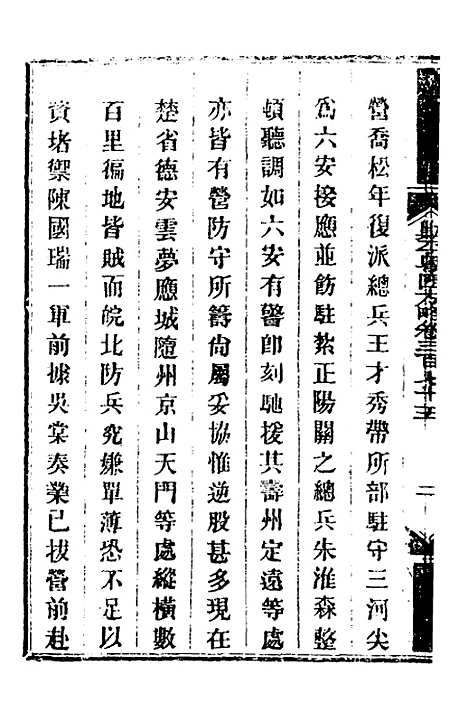 營喬松年復派總兵王才秀帶所部駐守三河尖
爲六安接應並飭駐紮正陽關之總兵朱淮森整
頓聽調如六安有警卽刻馳援其壽州定遠等處
亦皆有營防守所籌尙屬妥協惟逆股甚多現在
楚省德安雲夢應城隨州京山天門等處縱橫數
百里徧地皆賊而皖北防兵究嫌單薄恐不足以
資堵禦陳國瑞一軍前據吳棠奏業已拔營前赴
二